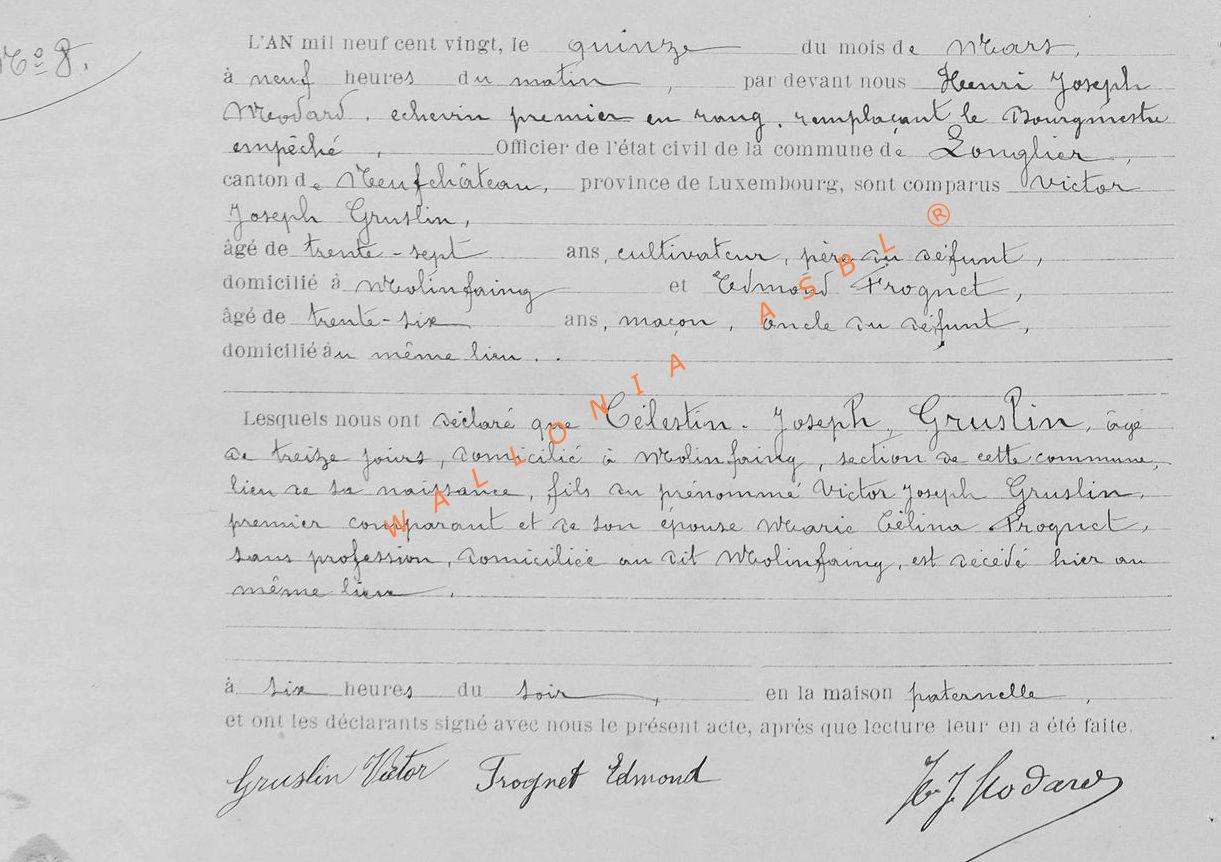 Nº 8.
L'AN mil neuf cent vingt, le quinze du mois de Mars,
à neuf heures du matin, par devant nous Henri Joseph
Modard, echevin premier en rang, remplaçant le Bourgmestre
empêché, Officier de l'état civil de la commune de Longlier,
canton de Neufchâteau, province de Luxembourg, sont comparus Victor
Joseph Gruslin,
âgé de trente-sept ans, cultivateur, père du défunt,
domicilié à Molinfaing et Edmond Frognet,
âgé de trente-six ans, maçon, oncle du défunt,
domicilié au même lieu..
Lesquels nous ont déclaré que Célestin-Joseph, Gruslin, âgé
de treize jours, domicilié à Molinfaing, section de cette commune,
lieu de sa naissance, fils du prénommé Victor Joseph Gruslin,
premier comparant et de son épouse Marie Célina Frognet,
sans profession, domiciliée au dit Molinfaing, est décédé hier au
même lieu,
à six heures du soir, en la maison paternelle,
et ont les déclarants signé avec nous le présent acte, après que lecture leur en a été faite.
Gruslin Victor Frognet Edmond H. J. Modard
WALLONIA ASBL ®